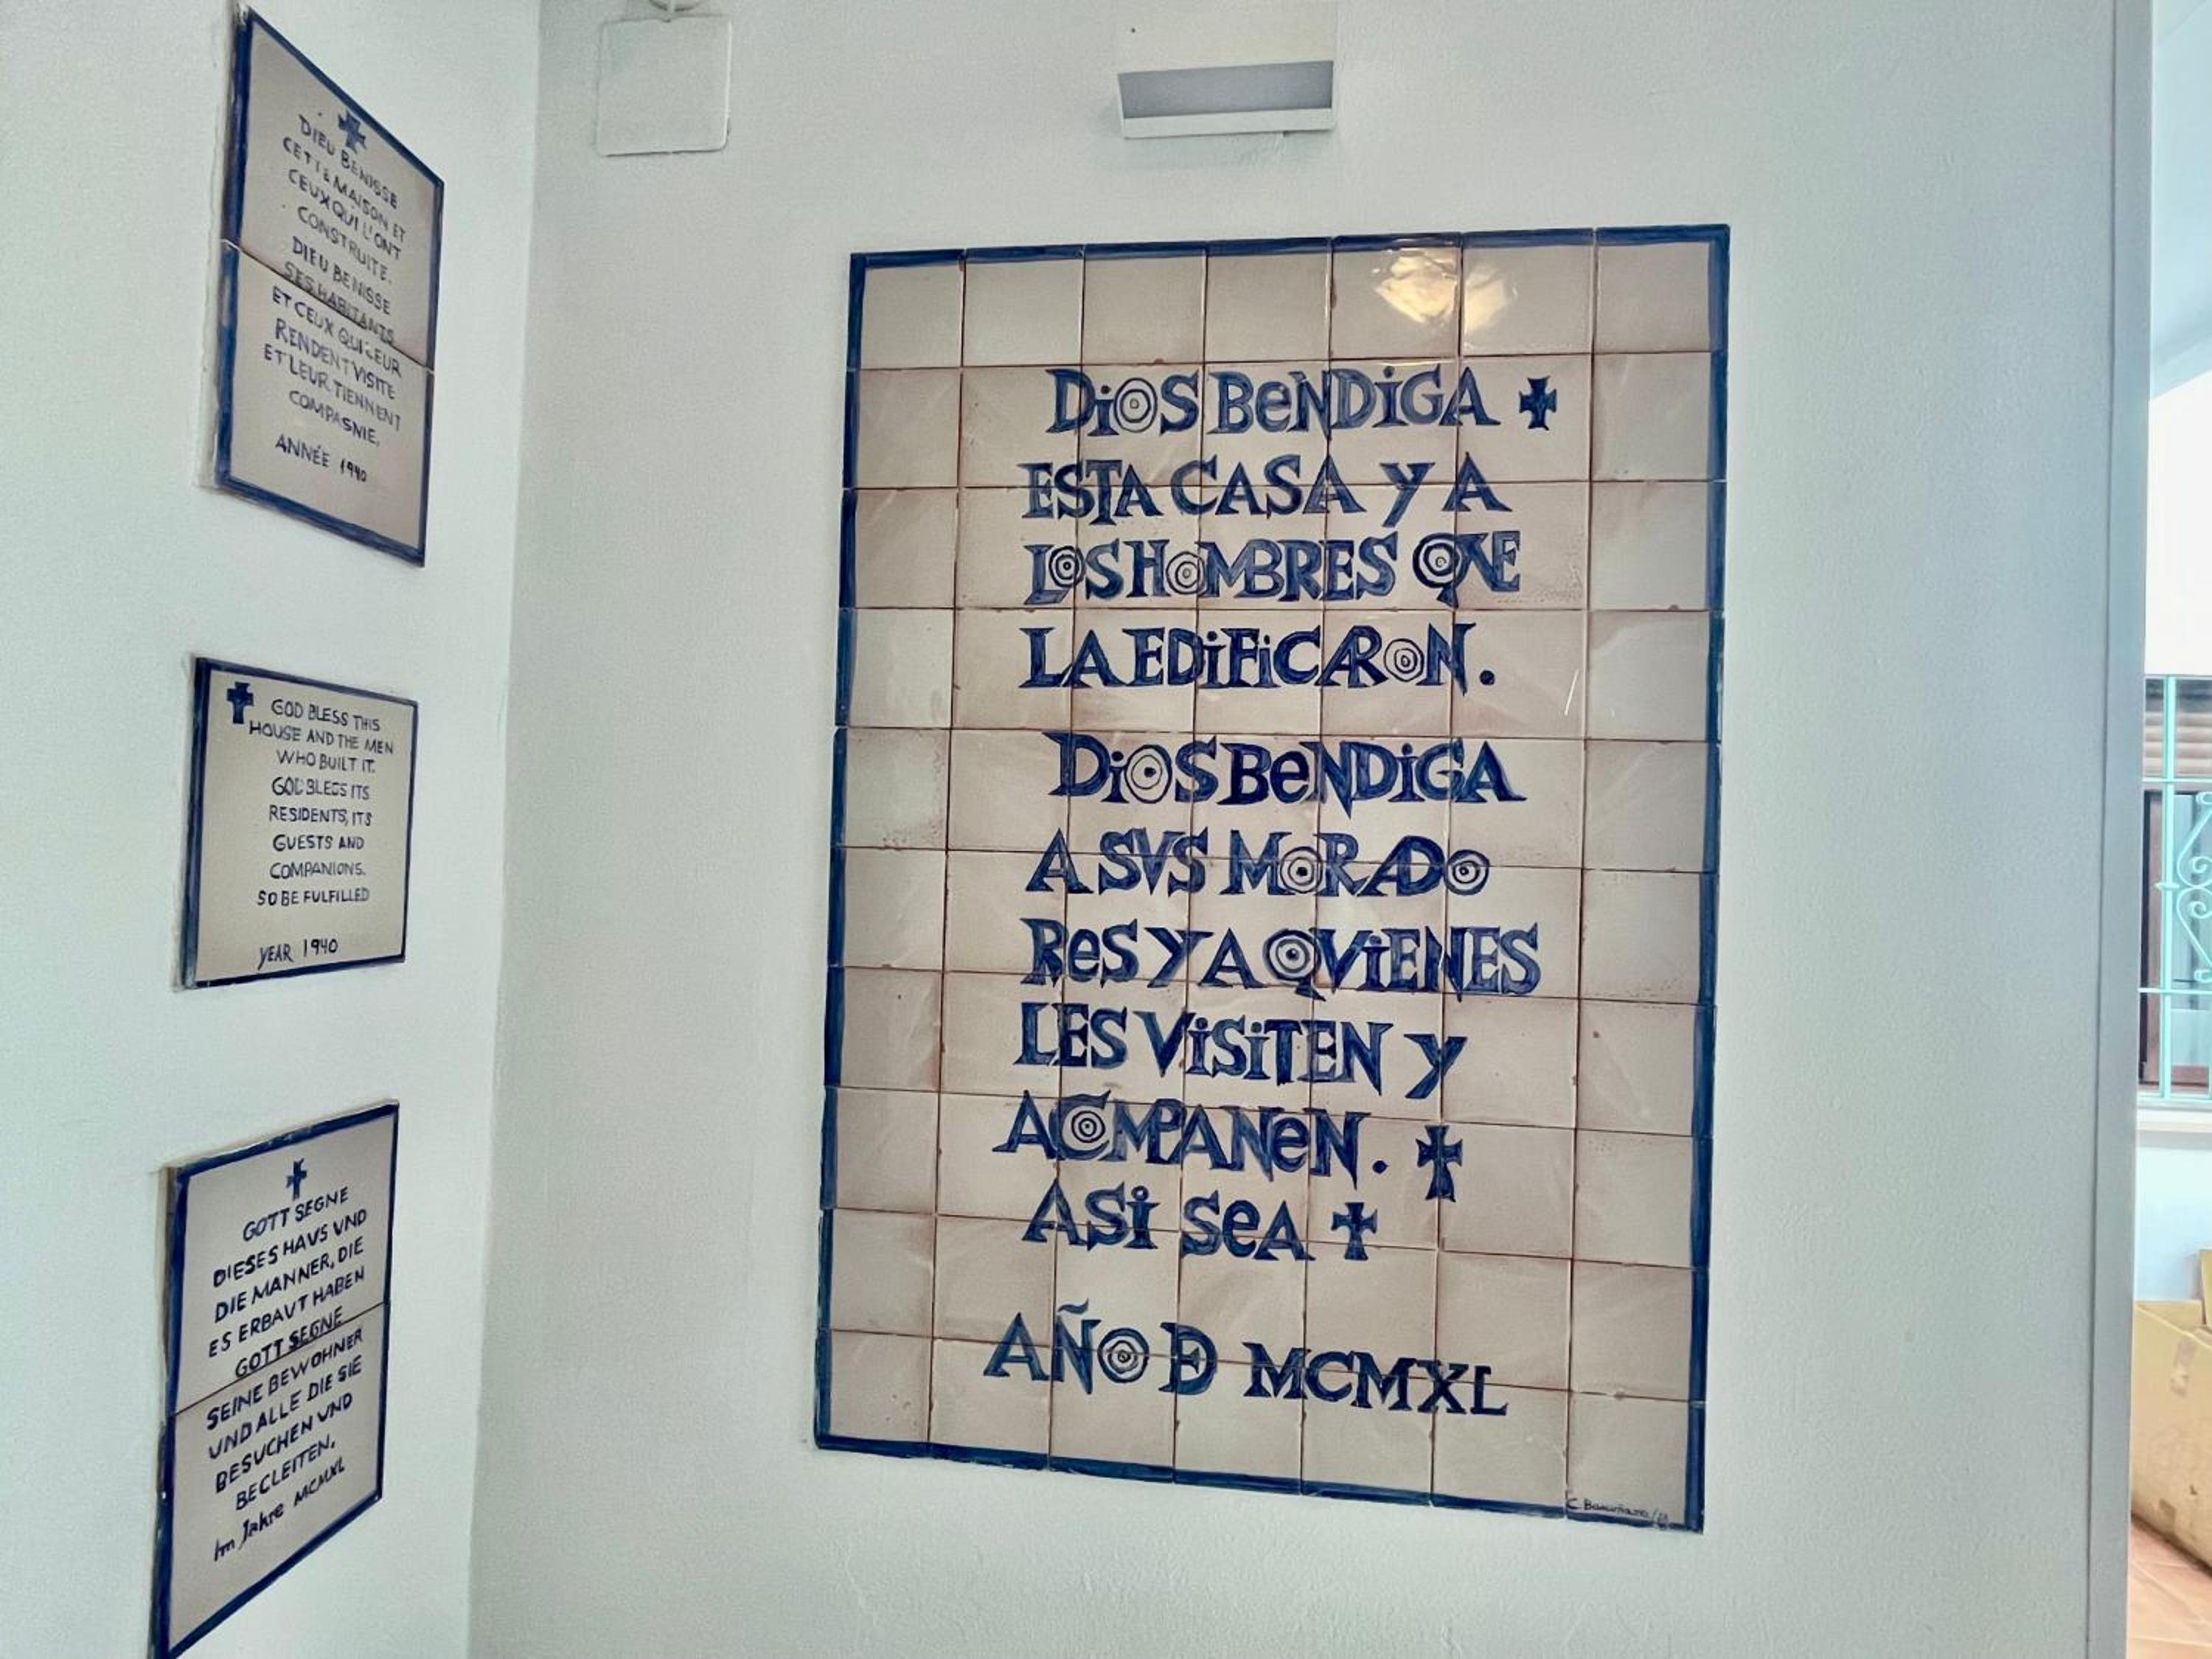 DIEU BENISSE
CETTE MAISON ET
CEUX QUI L'ONT
CONSTRUITE.
DIEU BENISSE
SES HABITANTS
ET CEUX QUI LEUR
RENDENT VISITE
ET LEUR TIENNENT
COMPASNIE,
ANNÉE 1940
GOD BLESS THIS
HOUSE AND THE MEN
WHO BUILT IT.
GOD BLESS ITS
RESIDENTS, ITS
GUESTS AND
COMPANIONS.
SO BE FULFILLED
YEAR 1940
GOTT SEGNE
DIESES HAVS VND
DIE MANNER, DIE
ES ERBAVT HABEN
GOTT SEGNE
SEINE BEWOHNER
VND ALLE DIE SIE
BESUCHEN VND
BECLEITEN.
Im Jahre MCMXL
DiOS BeNDiGA
ESTA CASA Y A
LOS HOMBRES QVE
LA EDiFiCARON.
DiOS BeNDiGA
A SVS MORADO
ReS Y A QViENES
LES ViSiTEN Y
ACOMPAÑeN.
ASi SeA
AÑO DE MCMXL